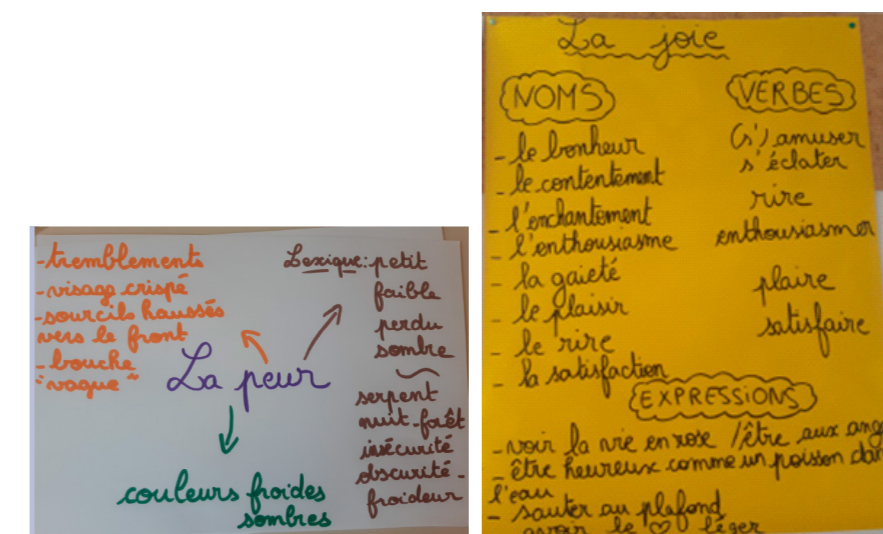 - tremblements
- visage crispé
- sourcils haussés
vers le front
- bouche
"vague"
La peur
Lexique: petit
faible
perdu
sombre
serpent
nuit-forêt
insécurité
obscurité-
froideur
couleurs froides
sombres
La joie
NOMS
- le bonheur
- le contentement
- l'enchantement
- l'enthousiasme
- la gaieté
- le plaisir
- le rire
- la satisfaction
VERBES
(s') amuser
s'éclater
rire
enthousiasmer
plaire
satisfaire
EXPRESSIONS
- voir la vie en rose / être aux ang
- être heureux comme un poisson dan
l'eau
- sauter au plafond
avoir le ♡ léger